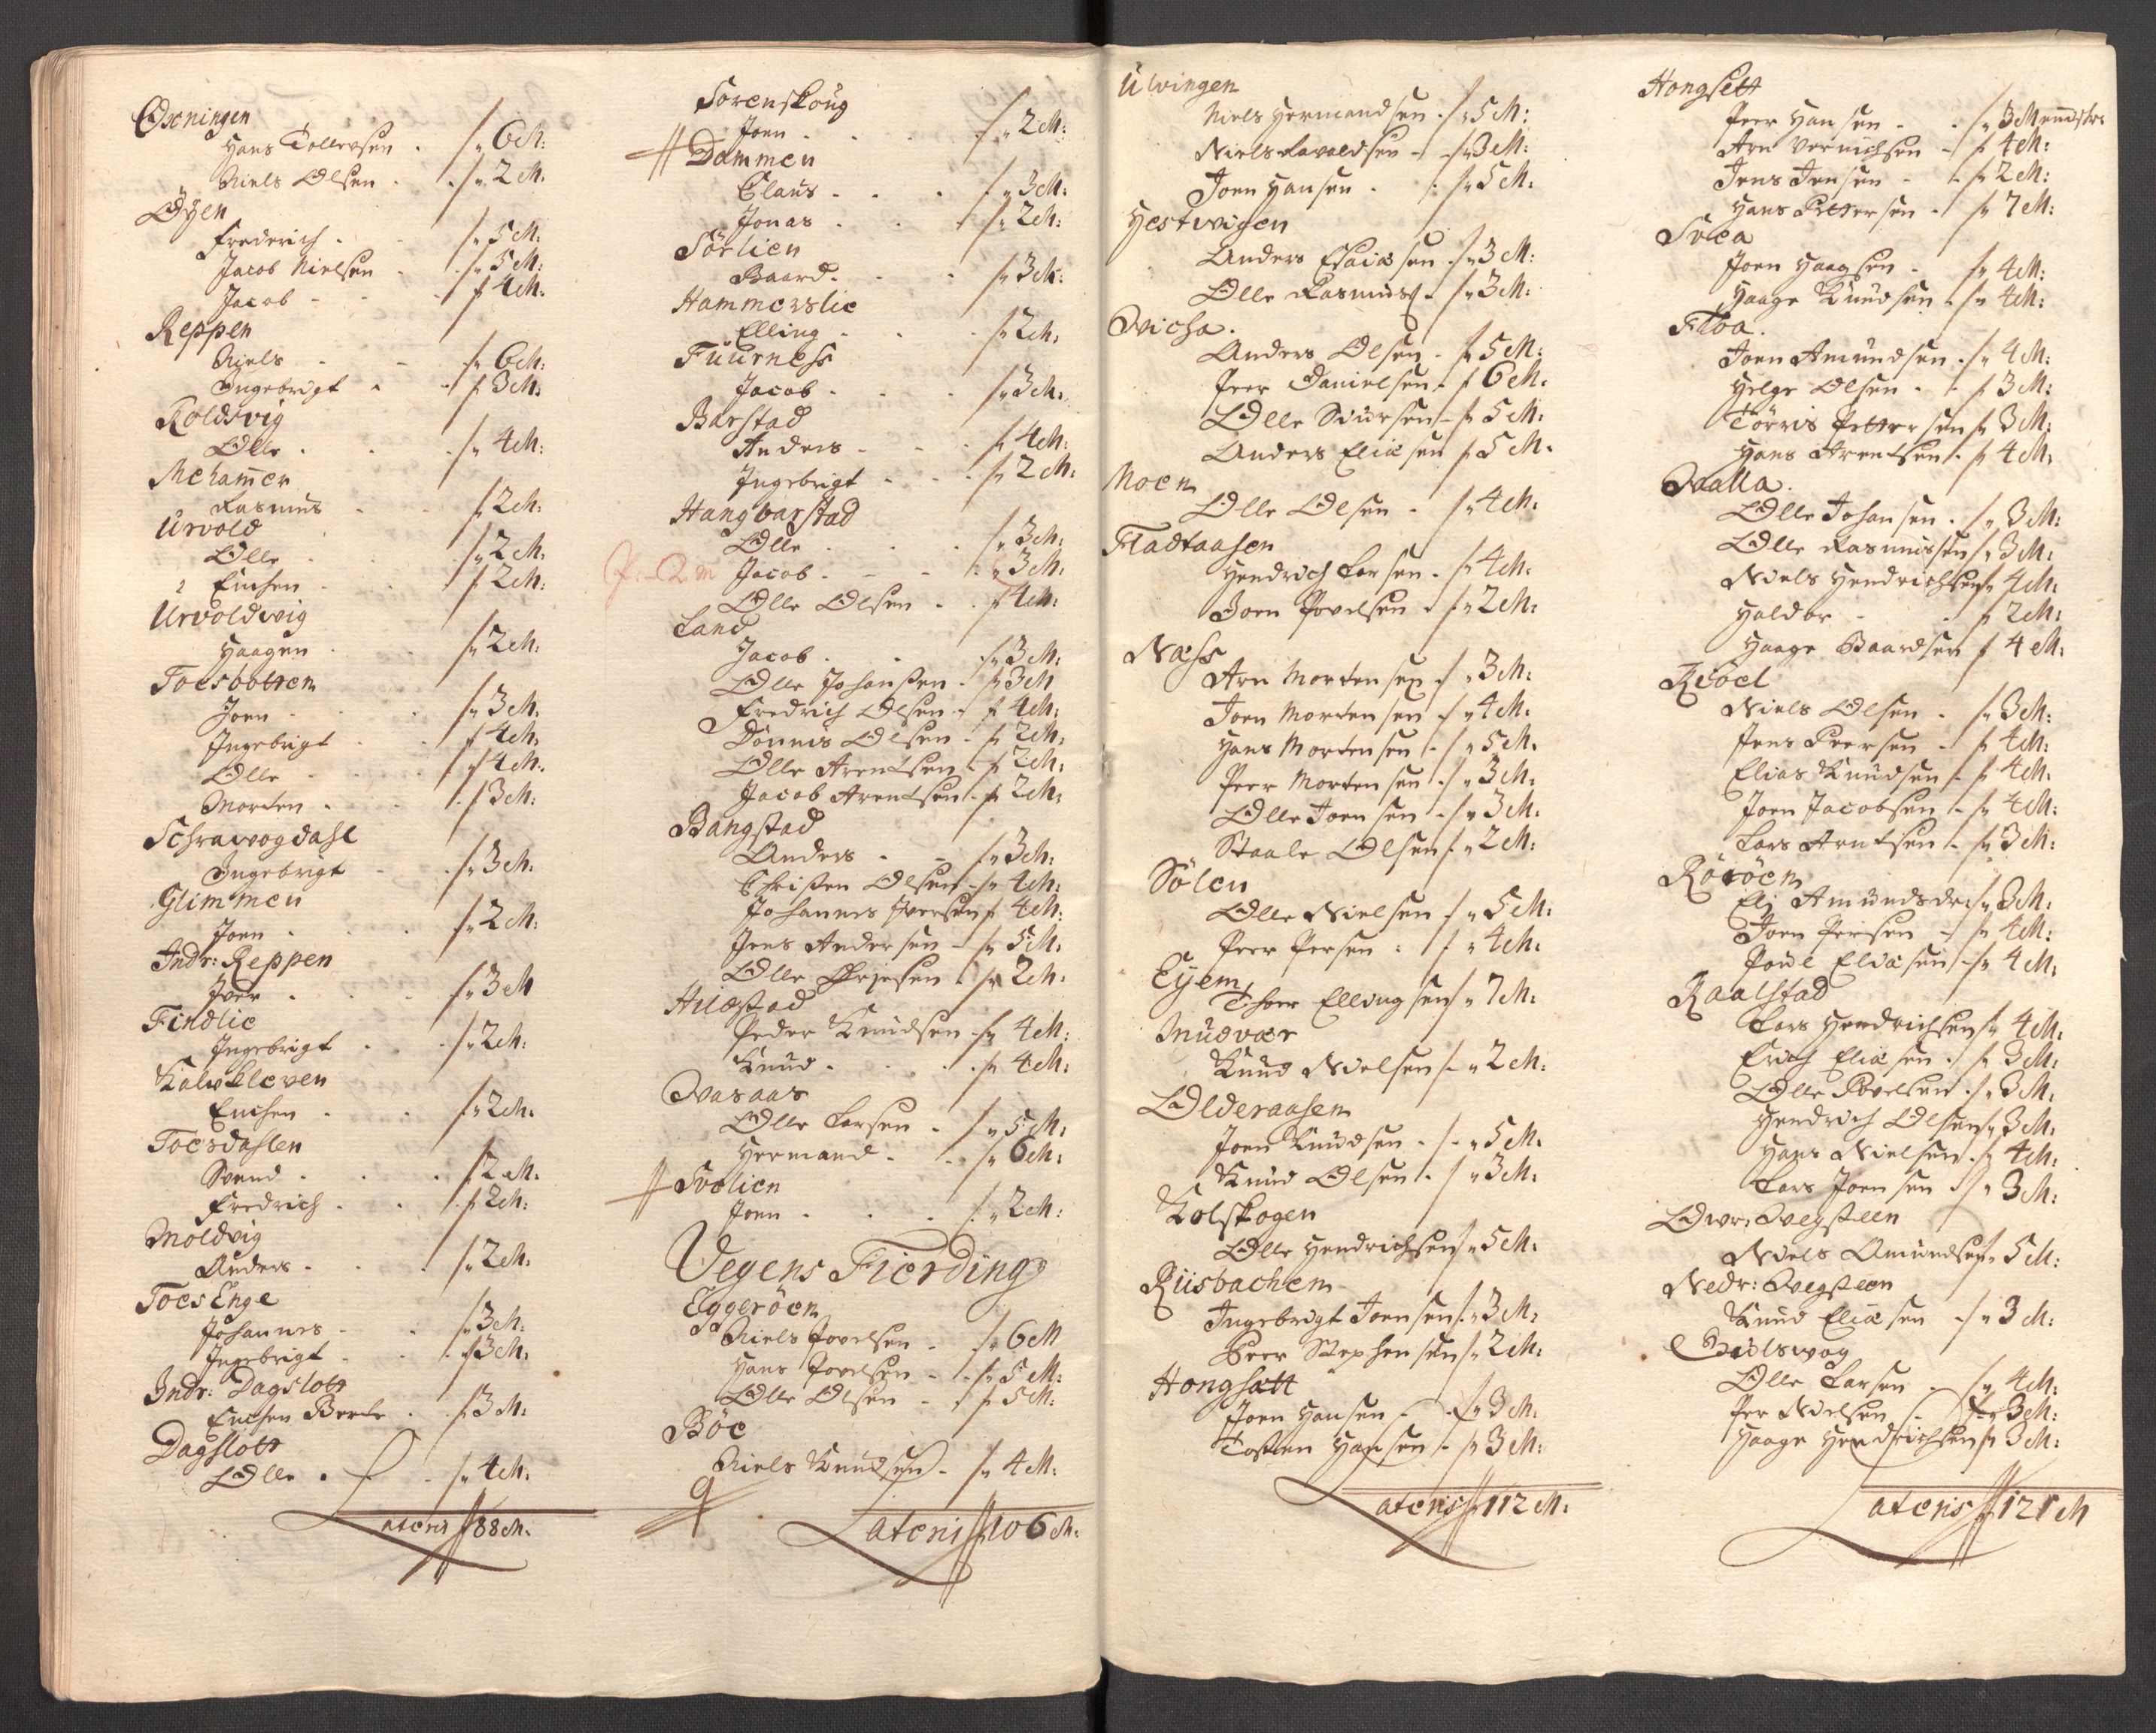 Oxningen
Hans Tollevsen . /" 6 M:
Niels Olsen . . /" 2 M.
Öyen
Frederich . /" 5 M:
Jacob Nielsen . /" 5 M:
Jacob - - /" 4 M:
Reppen
Niels . - /" 6 M:
Ingebrigt . /" 3 M.
Roldsvig
Olle . . /" 4 M:
Mehamer
Rasmus . /" 2 M.
Urvold
Olle . . /" 2 M.
Enchen . /" 2 M:
Urvoldvig
Haagen . . /" 2 M:
Toesbotten
Joen . . /" 3 M.
Ingebrigt . . /" 4 M.
Olle . . /" 4 M.
Morten . . /" 3 M:
Schravogdahl
Ingebrigt - . /" 3 M:
Glimmen
Joen . . /" 2 M.
Indr: Reppen
Iver . . /" 3 M
Findlie
Ingebrigt . . /" 2 M.
Kalvkleven
Enchen . . /" 2 M.
Toesdahlen
Svend . . . /" 2 M.
Fredrich . . /" 2 M:
Moldvig
Anders . . . /" 2 M.
Toes Enge
Johannes - . /" 3 M:
Ingebrigt - . /" 3 M.
Indr: Dagslott
Enchen Berete . /" 3 M:
Dagslott
Olle . . /" 4 M:
Lateris /" 88 M.
Sorenskoug
Joen . . . /" 2 M:
Dammen
Claus . . . /" 3 M:
Jonas . . /" 2 M:
Sörlien
Baard . - . /" 3 M:
Hammerslie
Elling . . . /" 2 M.
Fuurness
Jacob . . . /" 3 M.
Barstad
Anders . . . /" 4 M:
Ingebrigt . . . /" 2 M.
Hangbarstad
Olle . . . /" 3 M.
Jacob . - - /" 3 M.
Olle Olsen . . /" 4 M:
Land
Jacob . . /" 3 M.
Olle Johansen . /" 3 M
Fredrich Olsen . /" 4 M:
Dönnis Olsen . /" 2 M,
Olle Arentsen . /" 2 M.
Jacob Arentsen . /" 2 M,
Bangstad
Anders . - /" 3 M.
Christen Olsen . /" 4 M.
Johannes Iversen /" 4 M.
Jens Andersen - /" 5 M.
Olle /" 2 M.
Hildstad
Peder Knudsen /" 4 M.
Knud . . . /" 4 M.
Qvasaas
Olle Larsen . /" 5 M.
Hermand . . /" 6 M:
Svelien
Joen . . . /" 2 M:
Vegens Fierding
Eggeröen
Niels Povelsen . /" 6 M
Hans Povelsen . /" 5 M:
Olle Olsen . /" 5 M.
Böe
Niels Knudsen . /" 4 M.
Lateris /" 106 M:
Ulvingen
Niels Hermandsen . /" 5 M:
Niels Lavoldsen - /" 3 M:
Joen Hansen . . /" 5 M:
Hestvigen
Anders Esaiæsen . /" 3 M:
Olle Rasmus . /" 3 M:
Qvicha.
Anders Olsen . /" 5 M:
Peer Danielsen . /" 6 M.
Olle Siursen - /" 5 M.
Anders Eliæsen /" 5 M.
Moen
Olle Olsen . /" 4 M.
Fladtaasen
Hendrich Larsen . /" 4 M.
Joen Povelsen . /" 2 M:
Næss
Arn Mortensen . /" 3 M.
Joen Mortensen . /" 4 M.
Hans Mortensen . /" 5 M.
Peer Mortensen . /" 3 M.
Olle Joensen . /" 3 M.
Staale Olsen /" 2 M.
Sölen
Olle Nielsen /" 5 M.
Peer Persen . /" 4 M.
Eyem,
Thor Ellingsen /" 7 M.
Mudvær
Knud Nielsen /" 2 M.
Olderaasen
Joen Knudsen . /" 5 M.
Knud Olsen . /" 3 M.
Kolskogen
Olle Hendrichsen /" 5 M.
Riisbachen
Ingebrigt Joensen /" 3 M,
Peer Stephensen /" 2 M:
Hongsætt
Joen Hansen . /" 3 M.
Tosten Hansen . /" 3 M:
Lateris /" 112 M.
Hongsett
Peer Hansen . . /" 3 M
Arn Vernichsen - /" 4 M:
Jens Jensen - . /" 2 M:
Hans Pettersen . /" 7 M:
Svea
Joen Haagsen . /" 4 M:
Haage Knudsen . /" 4 M:
Floa.
Joen Amundsen . /" 4 M:
Helge Olsen . . /" 3 M:
Törris Pettersen /" 3 M.
Hans Arentsen . /" 4 M,
Qvalla.
Olle Johansen . /" 3 M:
Olle Rasmussen /" 3 M:
Niels Hendrichsen /" 4 M:
Haldor - . /" 2 M:
Haage Baardsen /" 4 M:
Rööel
Niels Olsen . /" 3 M:
Jens Peersen . /" 4 M:
Elias Knudsen . /" 4 M.
Joen Jacobsen . /" 4 M:
Lars Arntsen . /" 3 M:
Röröen
Eli Amundsdr: /" 3 M.
Joen Persen - /" 4 M:
Povel Eliæsen . /" 4 M,
Raalstad
Lars Hendrichsen /" 4 M.
Erich Eliæsen . /" 3 M.
Olle Povelsen . /" 3 M.
Hendrich Olsen /" 3 M.
Hans Nielsen . /" 4 M:
Lars Joensen . /" 3 M.
Owr: Vegsteen
Niels Amundsen /" 5 M:
Nedr: Vegsteen
Knud Eliæsen . /" 3 M:
Olle Larsen . /" 4 M:
Per Nielsen . /" 3 M:
Haage Hendrichsen /" 3 M:
Lateris /" 121 M